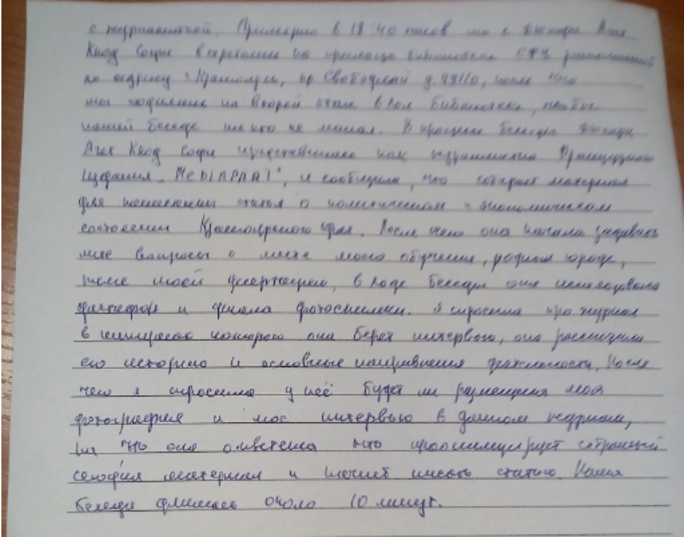 с журналисткой. Примерно в 18 40 часов мы с Дюнодр Агат
Клод Софи встретились на проспекте библиотеки СФУ расположенной
по адресу г. Красноярск, пр. Свободный д. 79/10, после чего
мы поднялись на второй этаж в зал библиотеки, чтобы
нашей беседе никто не мешал. В процессе беседы
Агат Клод Софи представилась как журналистка Французского
издания "MEDIAPART", и сообщила, что собирает материал
для написания статьи о политическом и экономическом
состоянии Красноярского края. После чего она начала задавать
мне вопросы о месте моего обучения, родном городе,
теме моей диссертации, в ходе беседы она использовала
диктофон и делала фотоснимки. Я спросила про журнал
в интересах которого она берет интервью, она рассказала
его историю и основные направления деятельности. После
чего я спросила у неё будет ли размещена моя
фотография и мое интервью в данном журнале,
на что она ответила что проанализирует собранный
сегодня материал и начнет писать статью. Наша
беседа длилась около 10 минут.